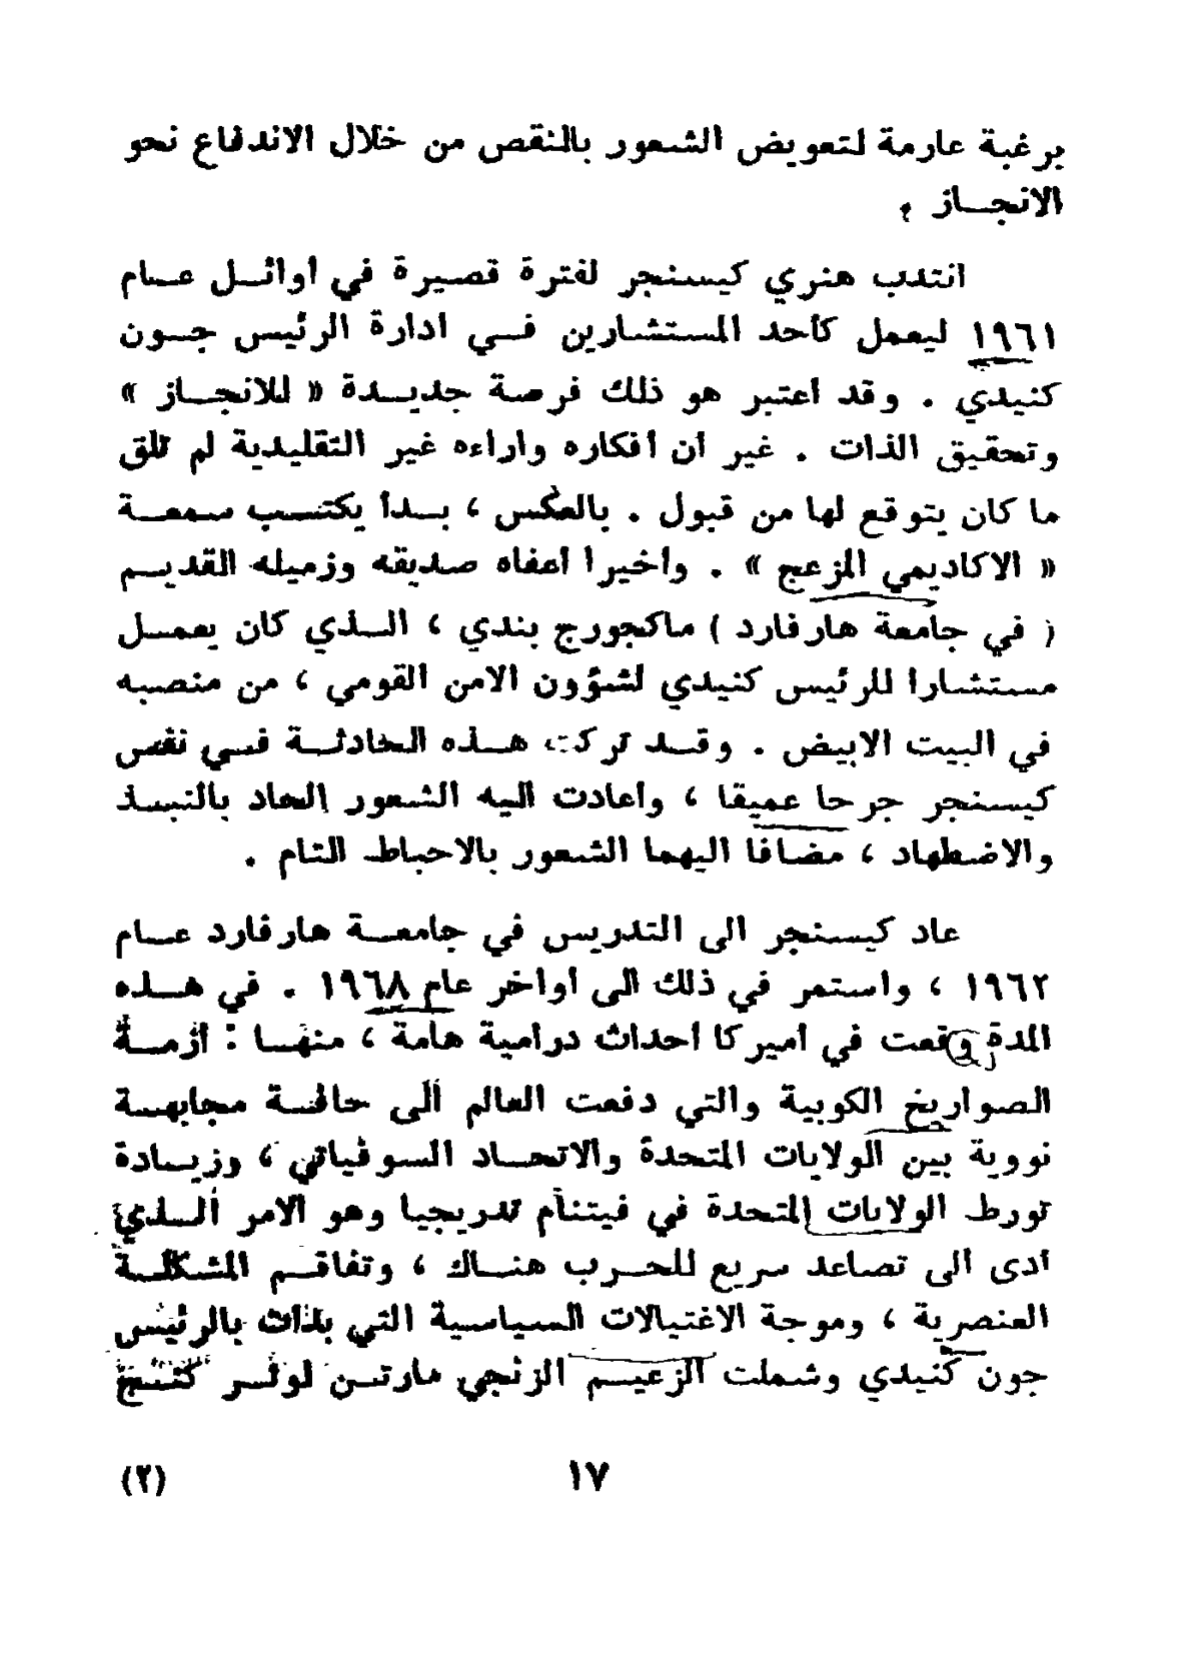 برغبة عارمة لتعويض الشعور بالنقص من خلال الاندفاع نحو
الانجاز .
انتدب هنري كيسنجر لفترة قصيرة في أوائل عام
١٩٦١ ليعمل كأحد المستشارين في ادارة الرئيس جون
كنيدي . وقد اعتبر هو ذلك فرصة جديدة « للانجاز »
وتحقيق الذات . غير ان أفكاره واراءه غير التقليدية لم تلق
ما كان يتوقع لها من قبول . بالعكس ، بدأ يكتسب سمعة
« الاكاديمي المزعج » . وأخيرا أعفاه صديقه وزميله القديم
( في جامعة هارفارد ) ماكجورج بندي ، الذي كان يعمل
مستشارا للرئيس كنيدي لشؤون الامن القومي ، من منصبه
في البيت الابيض . وقد تركت هذه الحادثة في نفس
كيسنجر جرحا عميقا ، واعادت اليه الشعور الحاد بالنبذ
والاضطهاد ، مضافا اليهما الشعور بالاحباط التام .
عاد كيسنجر الى التدريس في جامعة هارفارد عام
١٩٦٢ ، واستمر في ذلك الى أواخر عام ١٩٦٨ . في هذه
المدة وقعت في أميركا احداث درامية هامة ، منها : أزمة
الصواريخ الكوبية والتي دفعت العالم الى حافة مجابهة
نووية بين الولايات المتحدة والاتحاد السوفياتي ، وزيادة
تورط الولايات المتحدة في فيتنام تدريجيا وهو الامر الذي
أدى الى تصاعد سريع للحرب هناك ، وتفاقم المشكلة
العنصرية ، وموجة الاغتيالات السياسية التي بدأت بالرئيس
جون كنيدي وشملت الزعيم الزنجي مارتن لوثر كننج
١٧
(٢)